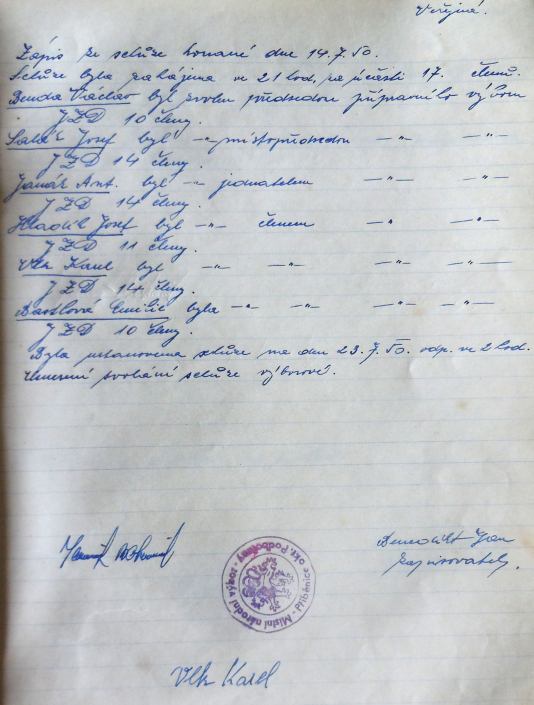 Veřejná.
Zápis ze schůze konané dne 14.7.50.
Schůze byla zahájena ve 21 hod. za účasti 17. členů.
Benda Václav byl zvolen předsedou přípravného výboru
JZD 10 členy.
Salát Josef byl -„- místopředsedou -„- -„-
JZD 14 členy.
Janák Ant. byl -„- jednatelem -„- -„-
JZD 14 členy.
Hladík Josef byl -„- členem -„- -„-
JZD 11 členy.
Vlk Karel byl -„- -„- -„- -„-
JZD 14 členy.
Bartlová Emilie byla -„- -„- -„- -„-
JZD 10 členy.
Byla ustanovena schůze na den 23.7.50. odp. ve 2 hod.
svolání schůze výborové.
Benedikt Jan
zapisovatel.
Místní národní výbor - Přiběnice okr. Podbořany
Vlk Karel